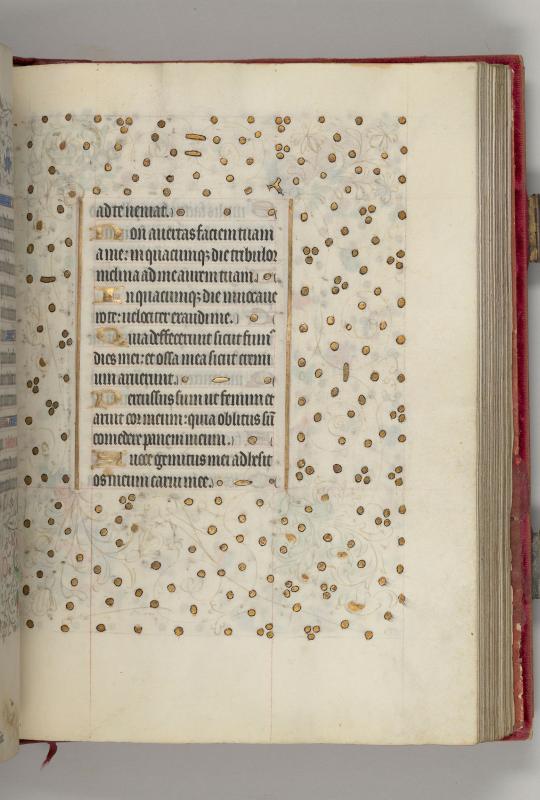 ad te ueniat.
Non auertas faciem tuam
a me: in quacumq; die tribulor
inclina ad me aurem tuam.
In quacumq; die inuocaue
ro te: uelociter exaudi me.
Quia deffecerunt sicut fum⁹
dies mei: et ossa mea sicut cremi
um aruerunt.
Percussus sum ut fenum et
aruit cor meum: quia oblitus sū
comedere panem meum.
A uoce gemitus mei adhesit
os meum carni mee.